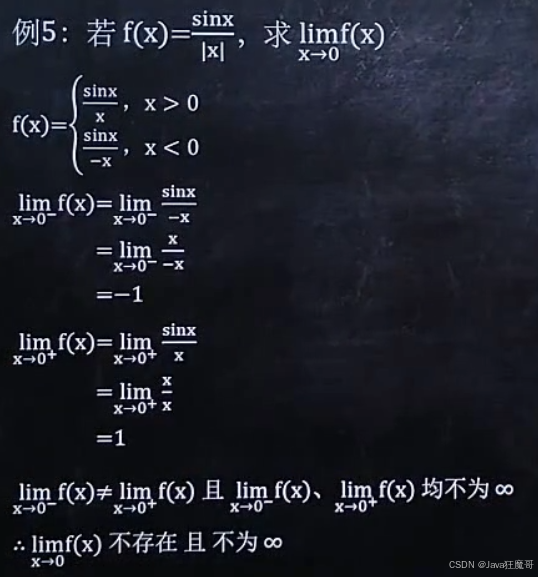 例5：若 f(x)=sinx/|x|，求 lim x→0 f(x)
f(x)={ sinx/x，x > 0
sinx/−x，x < 0
lim x→0⁻ f(x)= lim x→0⁻ sinx/−x
= lim x→0⁻ x/−x
=−1
lim x→0⁺ f(x)= lim x→0⁺ sinx/x
= lim x→0⁺ x/x
=1
lim x→0⁻ f(x)≠ lim x→0⁺ f(x) 且 lim x→0⁻ f(x)、lim x→0⁺ f(x) 均不为 ∞
∴ lim x→0 f(x) 不存在 且 不为 ∞
CSDN @Java狂魔哥